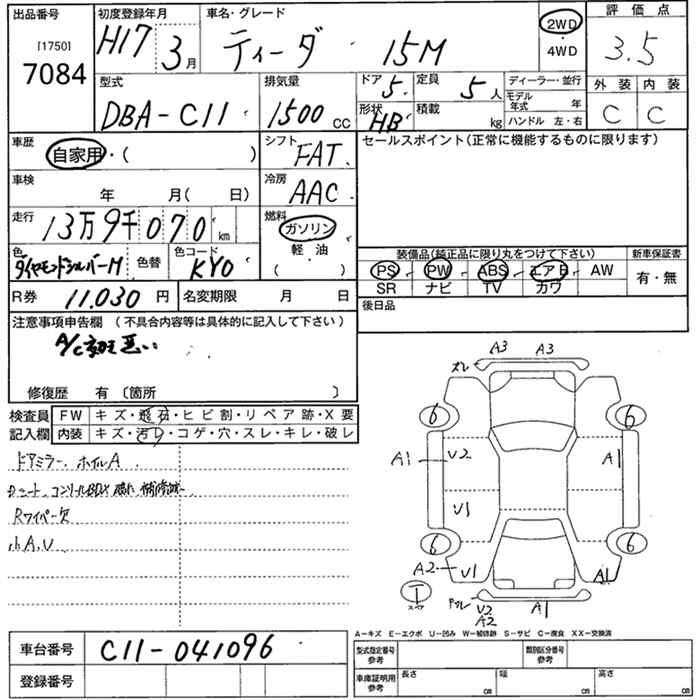 出品番号 初度登録年月 車名・グレード 2WD・4WD 評価点
[1750]
7084 H17 3月 ティーダ 15M 3.5
型式 排気量 ドア 5 定員 5人 ディーラー・並行 外装 内装
DBA-C11 1500cc 形状 HB 積載 kg モデル年式 年 ハンドル 左・右 C C
車歴 自家用・( ) シフト FAT セールスポイント(正常に機能するものに限ります)
車検 年 月( 日) 冷房 AAC
走行 13万9千070km 燃料 ガソリン 軽・油 ( )
色 ダイヤモンドシルバーM 色替 色コード KY0
装備品(純正品に限り丸をつけて下さい) 新車保証書
PS PW ABS エアB AW 有・無
SR ナビ TV カワ
R券 11,030円 名変期限 月 日 後日品
注意事項申告欄 (不具合内容等は具体的に記入して下さい)
A/C 悪い
修復歴 有 〔箇所 〕
検査員記入欄 FW キズ・飛石・ヒビ割・リペア跡・X要
内装 キズ・汚レ・コゲ・穴・スレ・キレ・破レ
ドアミラー、ホイルA
Rワイパー欠
小A、U
A3 A3
6 6
A1 U2 A1
U1
6 6
A2 U1 A1
U2 A1
A2
A－キズ E－エクボ U－凹み W－補修跡 S－サビ C－腐食 XX－交換済
車台番号 C11-041096 型式指定番号 参考 類別区分番号 参考
登録番号 車庫証明用 参考 長さ cm 幅 cm 高さ cm